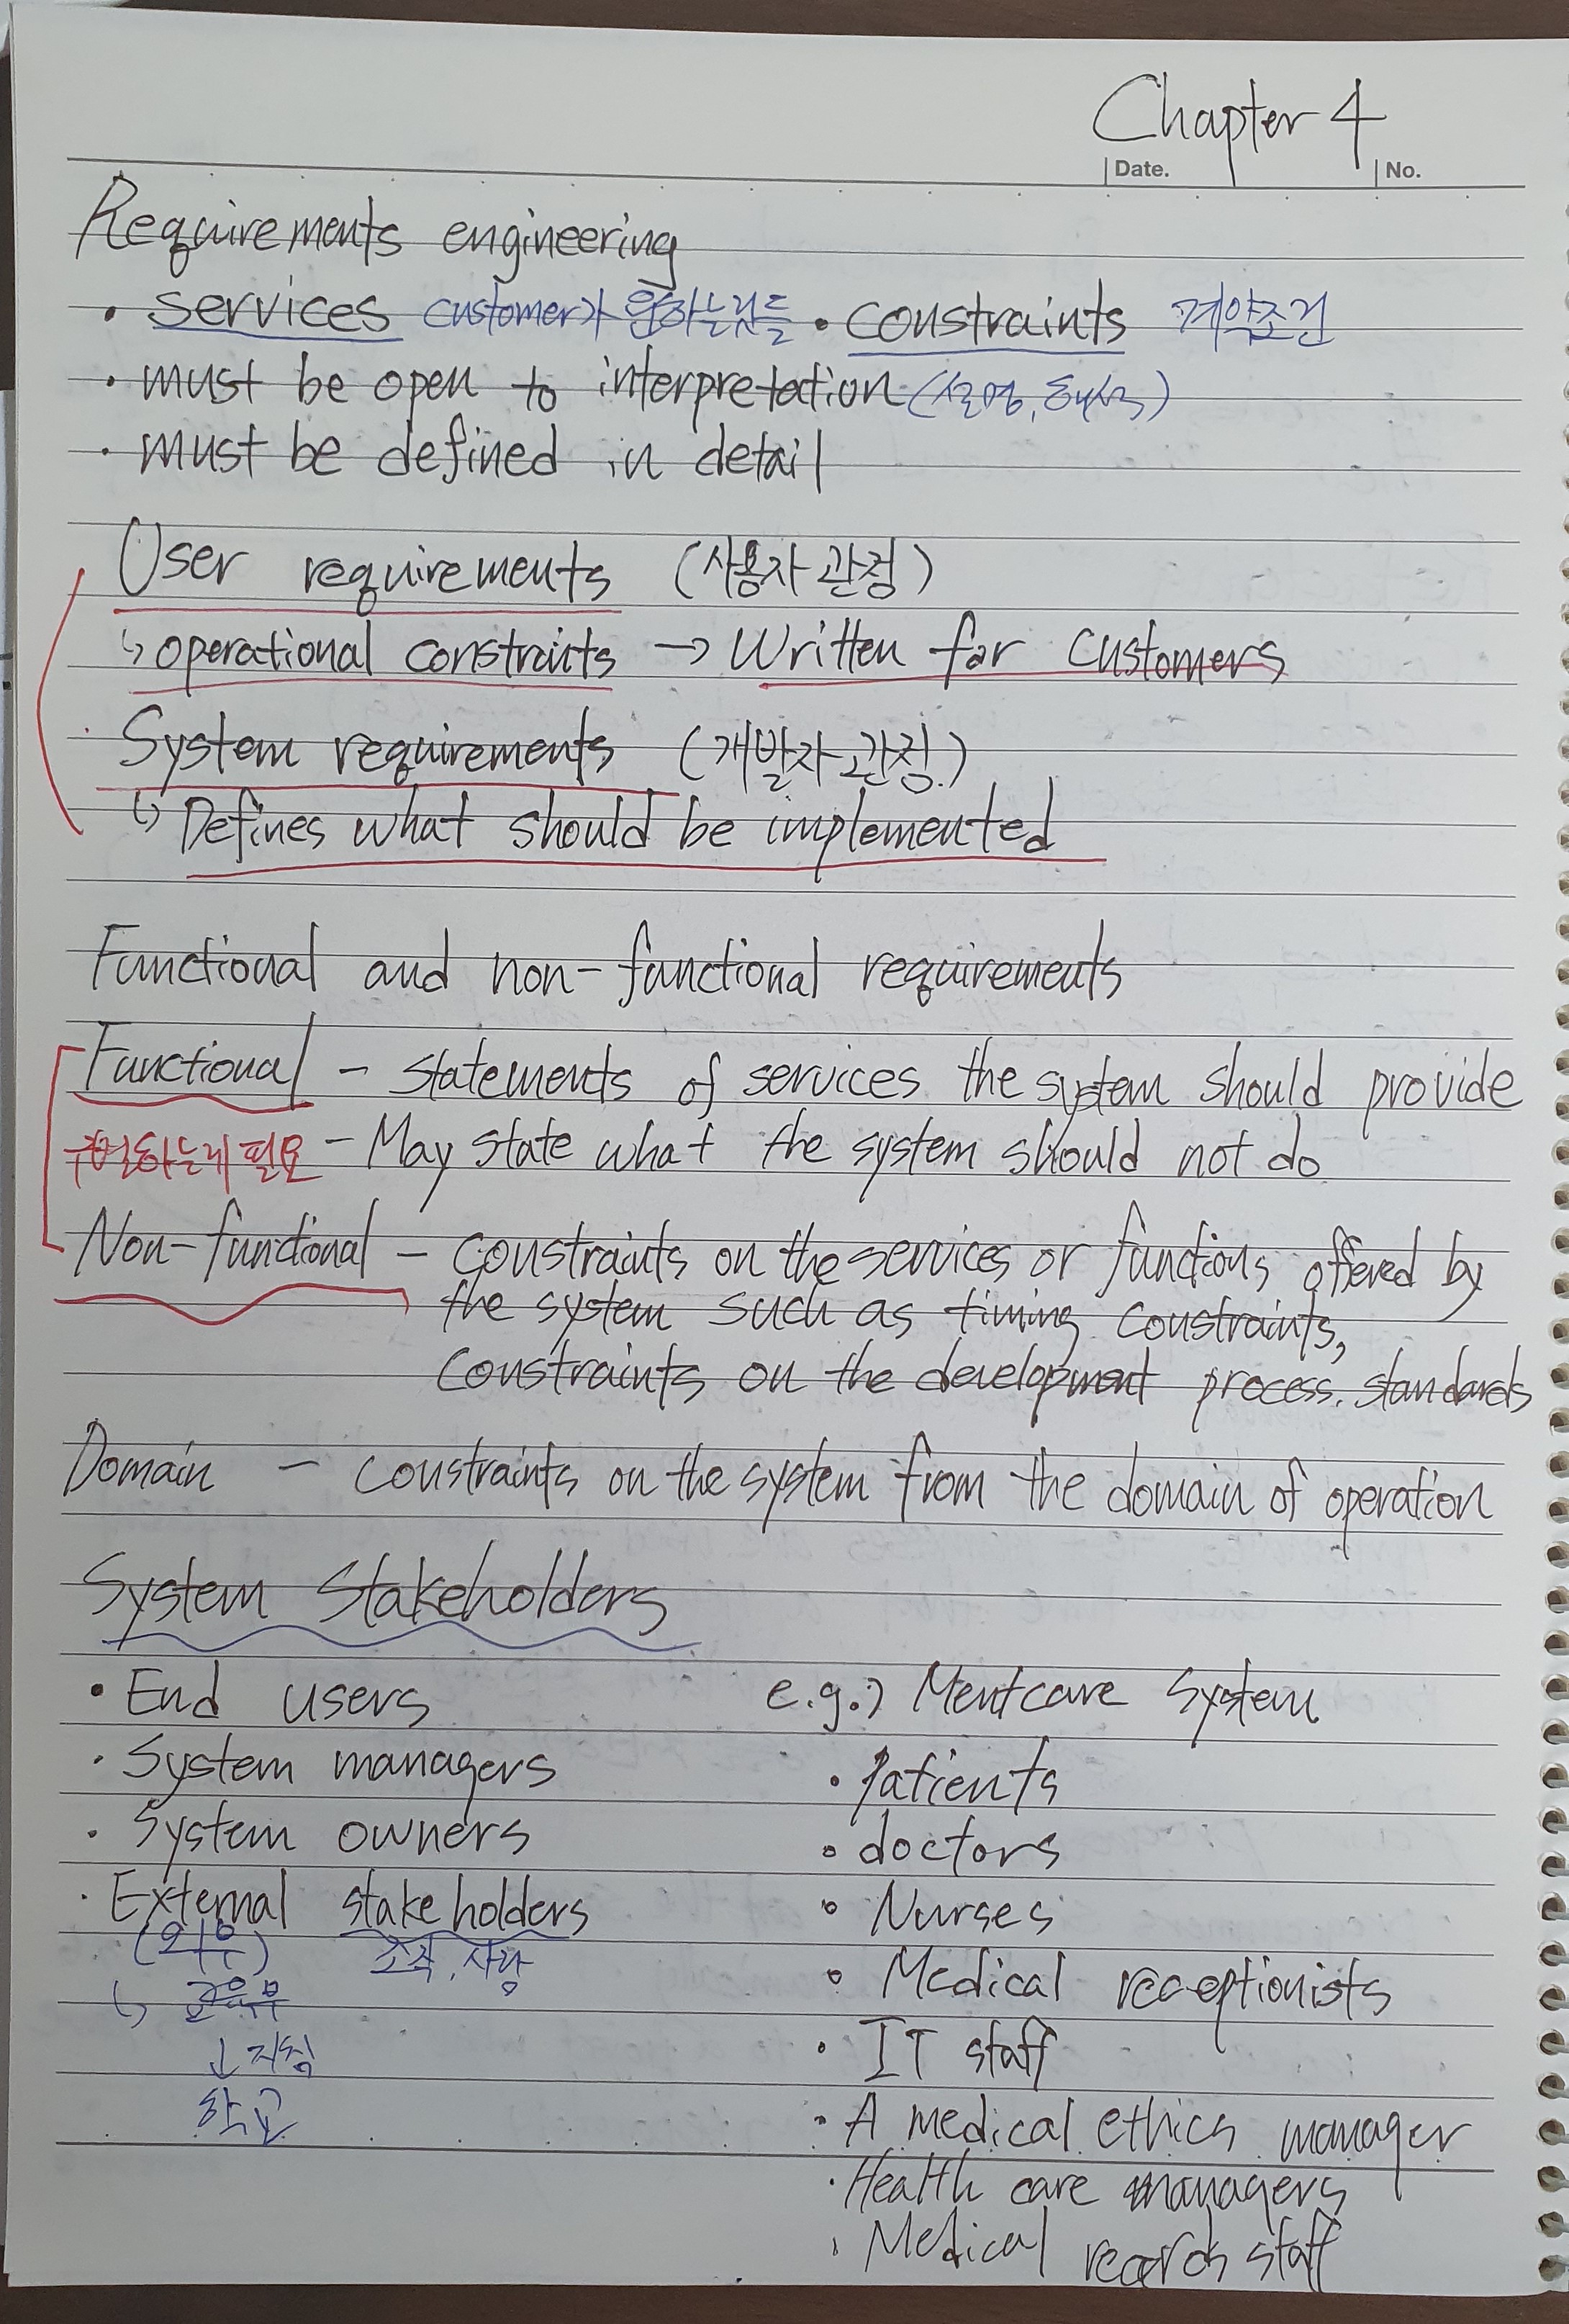 Chapter 4
Date. No.
Requirements engineering
· services customer가 원하는것들 · constraints 계약조건
· must be open to interpretation (설명, 해석)
· must be defined in detail
User requirements (사용자 관점)
↳ operational constraints → Written for customers
System requirements (개발자 관점)
↳ Defines what should be implemented
Functional and non-functional requirements
Functional - statements of services the system should provide
구별하는게 필요 - May state what the system should not do
Non-functional - constraints on the services or functions offered by
the system such as timing constraints,
constraints on the development process, standards
Domain - constraints on the system from the domain of operation
System Stakeholders
· End users e.g.) Mentcare System
· System managers · Patients
· System owners · doctors
· External stakeholders · Nurses
(외부) 조직, 사람 · Medical receptionists
↳ 교육부
↓ 지침 · IT staff
학교 · A medical ethics manager
· Health care managers
· Medical records staff